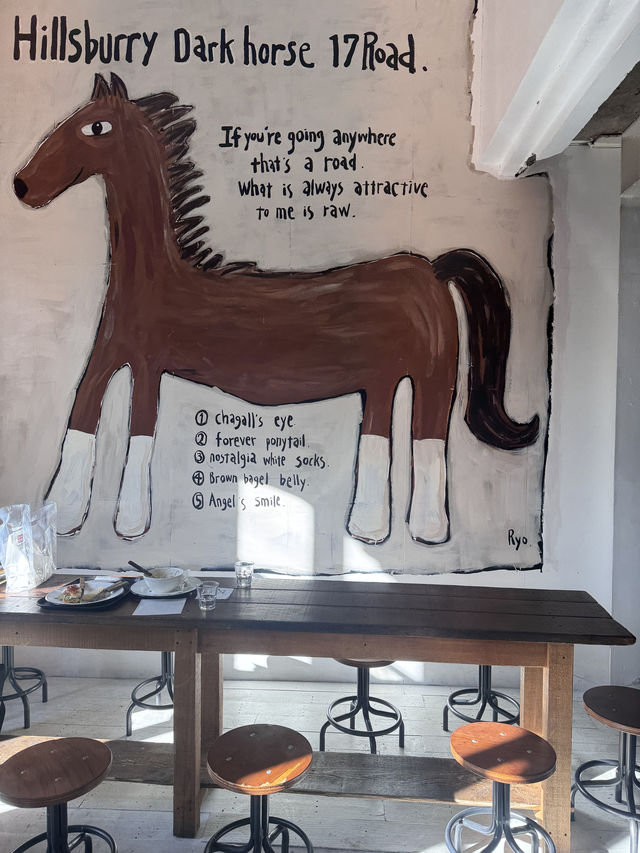 Hillsburry Dark horse 17Road.
If you're going anywhere
that's a road.
What is always attractive
to me is raw.
① chagall's eye.
② forever ponytail.
③ nostalgia white socks.
④ Brown bagel belly.
⑤ Angel's smile.
Ryo.